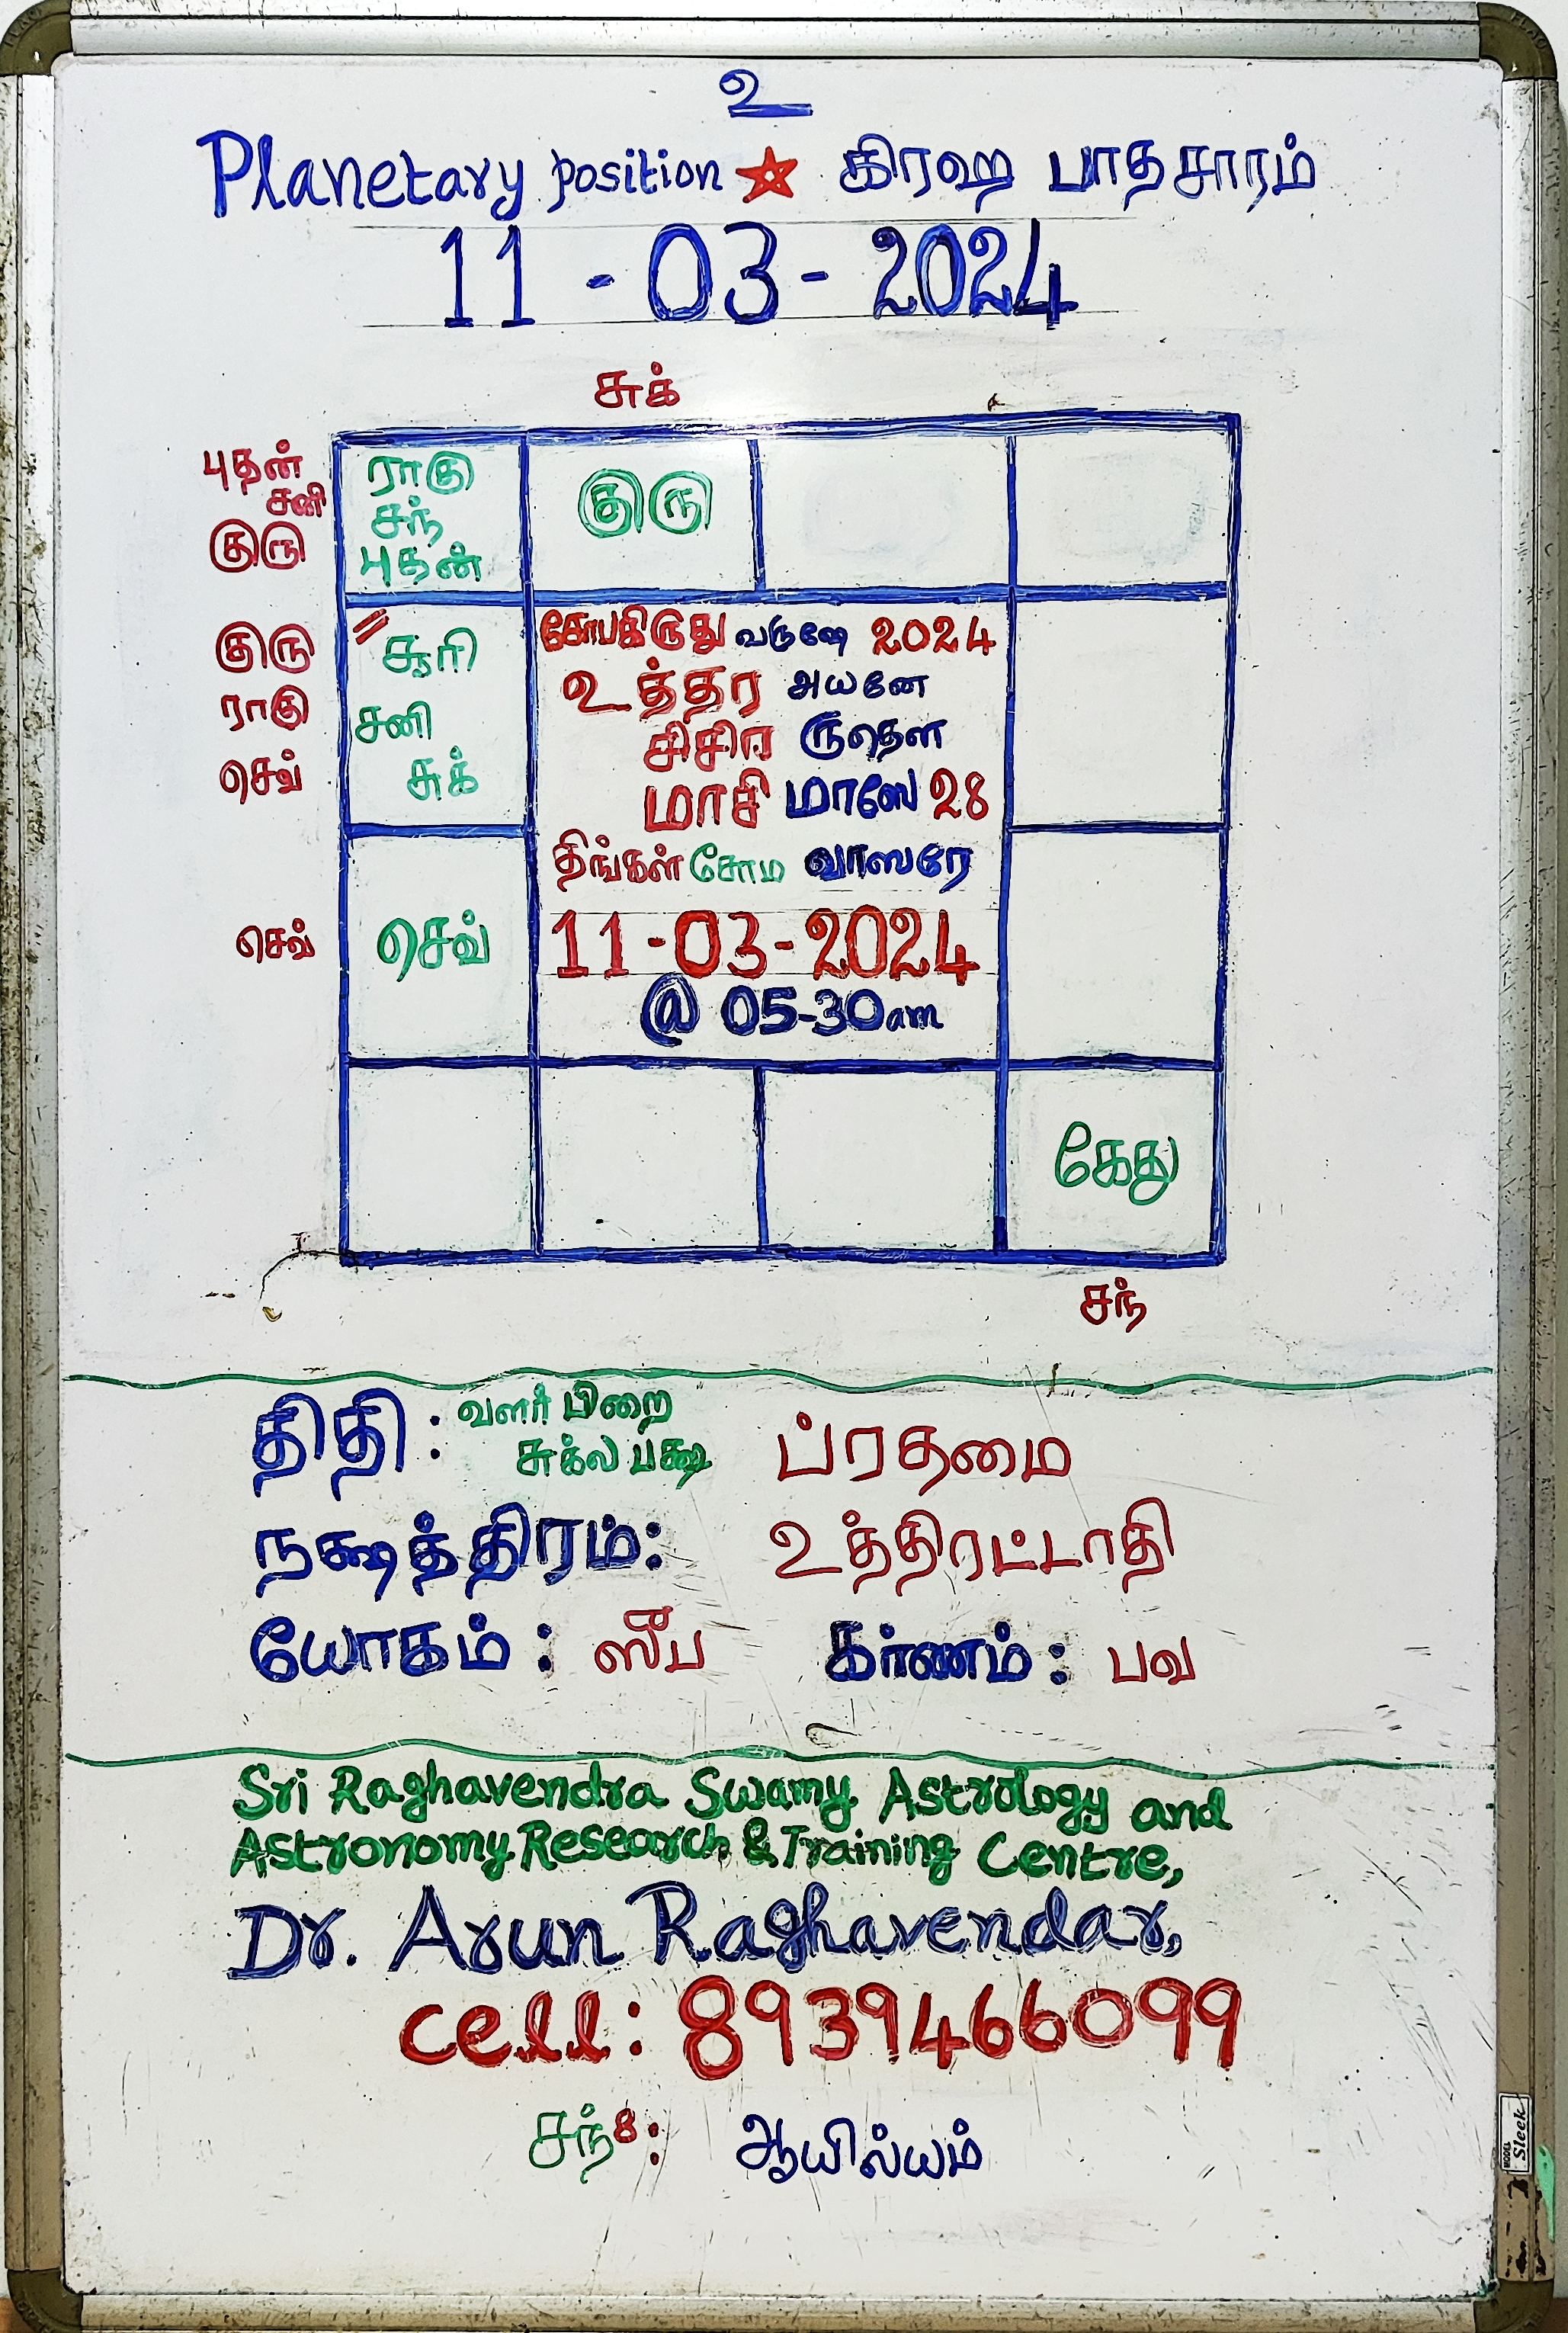 உ
Planetary position கிரஹ பாதசாரம்
11-03-2024
சுக்
புதன்
சனி
குரு
ராகு
சந்
புதன்
குரு
குரு
ராகு
செவ்
சூரி
சனி
சுக்
கோபகிருது வருஷே 2024
உத்தர அயனே
சிசிர ருதௌ
மாசி மாஸே 28
திங்கள் சோம வாஸரே
11-03-2024
@ 05-30am
செவ்
செவ்
கேது
சந்
திதி : வளர் பிறை
சுக்ல பக்ஷ ப்ரதமை
நக்ஷத்திரம்: உத்திரட்டாதி
யோகம் : ஸீப கர்ணம் : பவ
Sri Raghavendra Swamy Astrology and
Astronomy Research & Training Centre,
Dr. Arun Raghavendar,
cell: 8939466099
சந்8: ஆயில்யம்
MODEL
Sleek